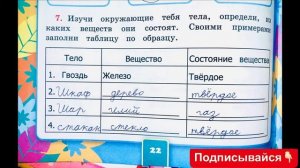 7. Изучи окружающие тебя тела, определи, из
каких веществ они состоят. Своими примерами
заполни таблицу по образцу.
Тело Вещество Состояние вещества
1. Гвоздь Железо Твёрдое
2. Шкаф дерево твёрдое
3. Шар гелий газ
4. стакан стекло твёрдое
22
Подписывайся